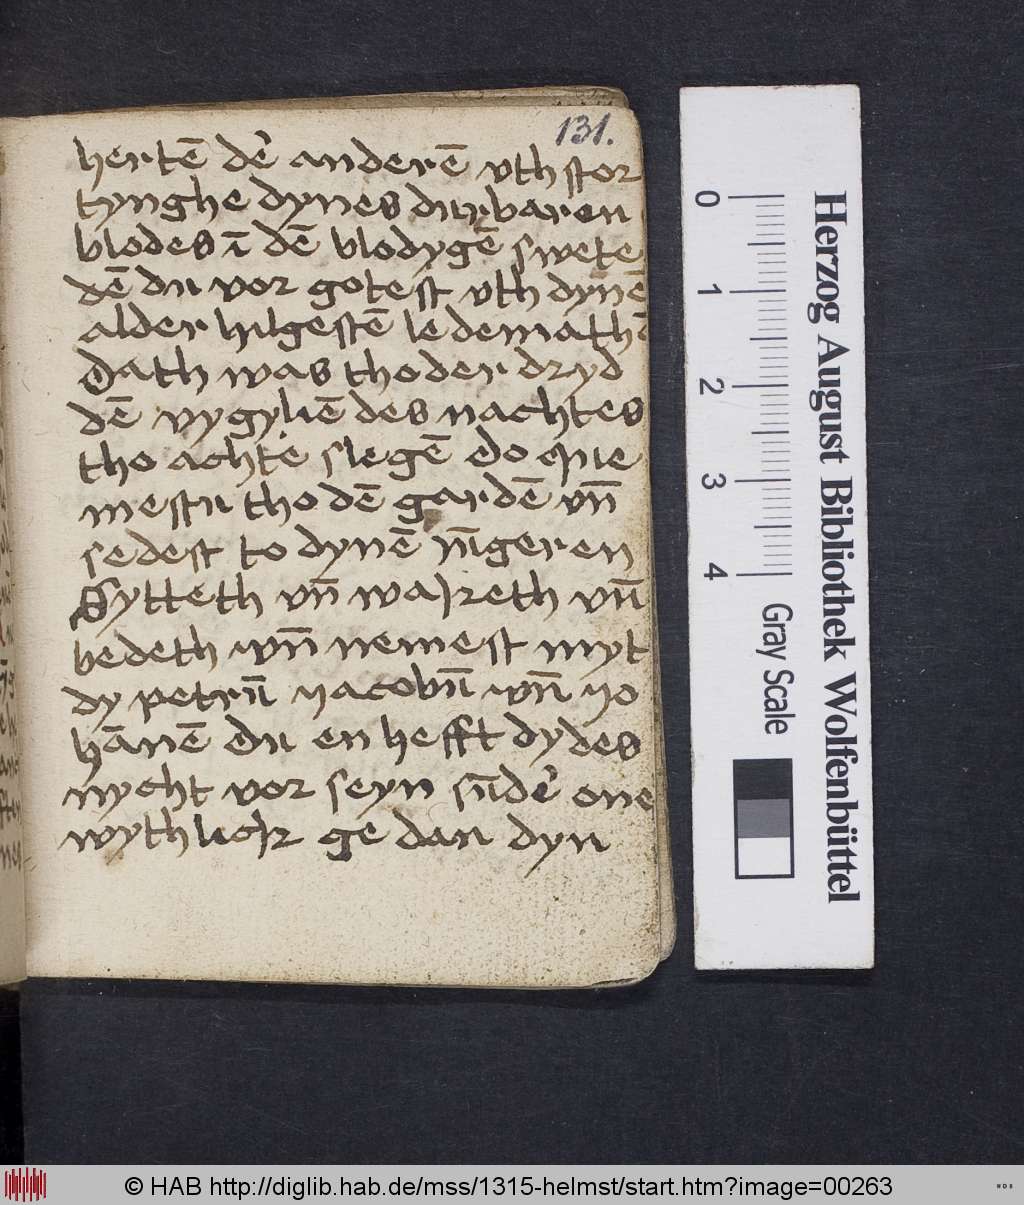 131.
hertē dē anderē vthstor
tynghe dynes durbaren
blodes ī dē blodygē swete
dē du vor gotest vth dynē
alder hilgestē ledemathē
Dath was tho der dryd
dē vygyliē des nachtes
tho achte slegē Do que
mestu tho dē gardē vn̄
sedest to dynē iūgeren
Sytteth vn̄ waket vn̄
bedeth vn̄ nemest myt
dy petrū iacobū vn̄ io
hānē Du en hefft dy des
nycht vor seyn sūdē one
wythlick ge dan dyn
Herzog August Bibliothek Wolfenbüttel
0 1 2 3 4
Gray Scale
© HAB http://diglib.hab.de/mss/1315-helmst/start.htm?image=00263